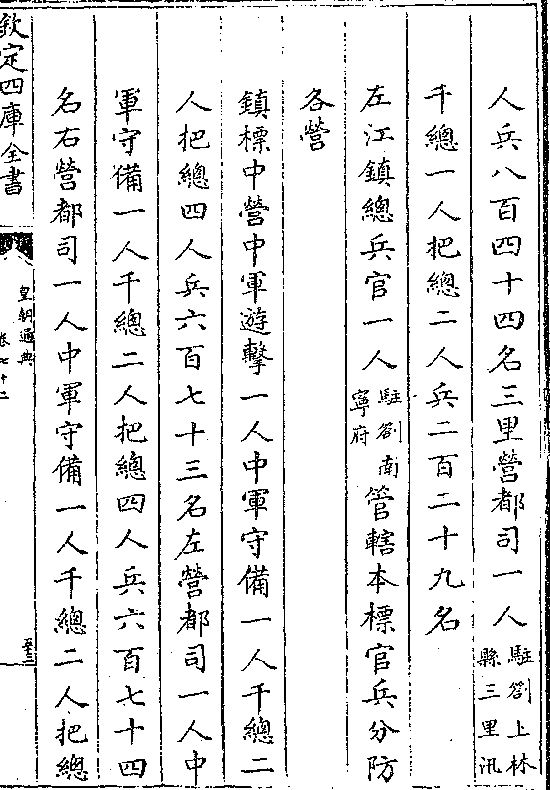 人兵八百四十四名三里營都司一人駐劄上林縣三里汛
千總一人把總二人兵二百二十九名
左江鎮總兵官一人駐劄南寧府管轄本標官兵分防
各營
鎮標中營中軍遊擊一人中軍守備一人千總二
人把總四人兵六百七十三名左營都司一人中
軍守備一人千總二人把總四人兵六百七十四
名右營都司一人中軍守備一人千總二人把總
欽定四庫全書
皇朝通典
卷七十二